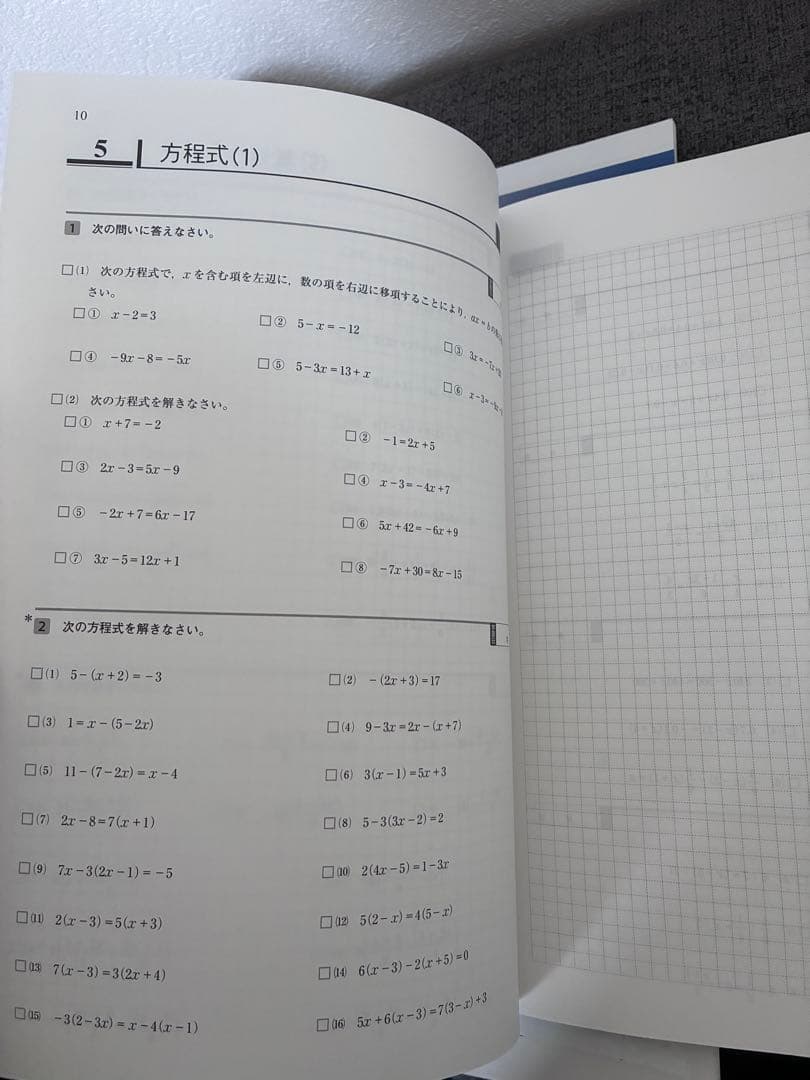 10
5 方程式(1)
1 次の問いに答えなさい。
□(1) 次の方程式で，xを含む項を左辺に，数の項を右辺に移項することにより，ax=bの
さい。
□① x-2=3 □② 5-x=-12 □③ 3x=-7x+
□④ -9x-8=-5x □⑤ 5-3x=13+x □⑥ x-3=
□(2) 次の方程式を解きなさい。
□① x+7=-2 □② -1=2x+5
□③ 2x-3=5x-9 □④ x-3=-4x+7
□⑤ -2x+7=6x-17 □⑥ 5x+42=-6x+9
□⑦ 3x-5=12x+1 □⑧ -7x+30=8x-15
*2 次の方程式を解きなさい。
□(1) 5-(x+2)=-3 □(2) -(2x+3)=17
□(3) 1=x-(5-2x) □(4) 9-3x=2x-(x+7)
□(5) 11-(7-2x)=x-4 □(6) 3(x-1)=5x+3
□(7) 2x-8=7(x+1) □(8) 5-3(3x-2)=2
□(9) 7x-3(2x-1)=-5 □(10) 2(4x-5)=1-3x
□(11) 2(x-3)=5(x+3) □(12) 5(2-x)=4(5-x)
□(13) 7(x-3)=3(2x+4) □(14) 6(x-3)-2(x+5)=0
□(15) -3(2-3x)=x-4(x-1) □(16) 5x+6(x-3)=7(3-x)+3